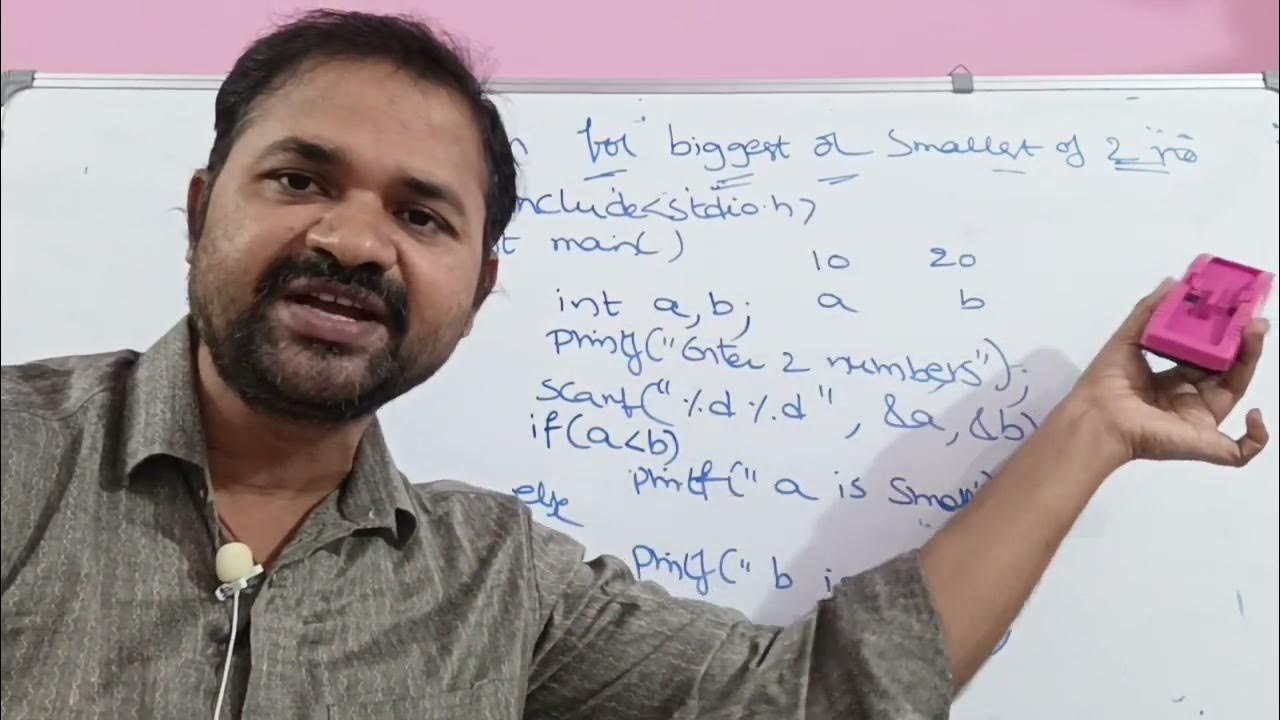 for biggest or Smallest of 2 no
nclude<stdio.h>
t main()
10 20
int a,b; a b
printf("Enter 2 numbers");
scanf("%d %d", &a, &b)
if(a<b)
printf("a is Small")
else
printf("b is